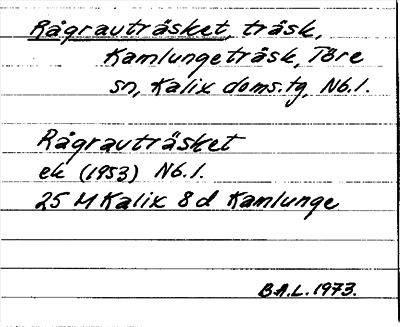 Rågrauträsket, träsk,
Kamlungeträsk, Töre
sn, Kalix doms.tg, Nb.l.
Rågrauträsket
ek (1953) Nb.l.
25 M Kalix 8d Kamlunge
B.A.L. 1973.